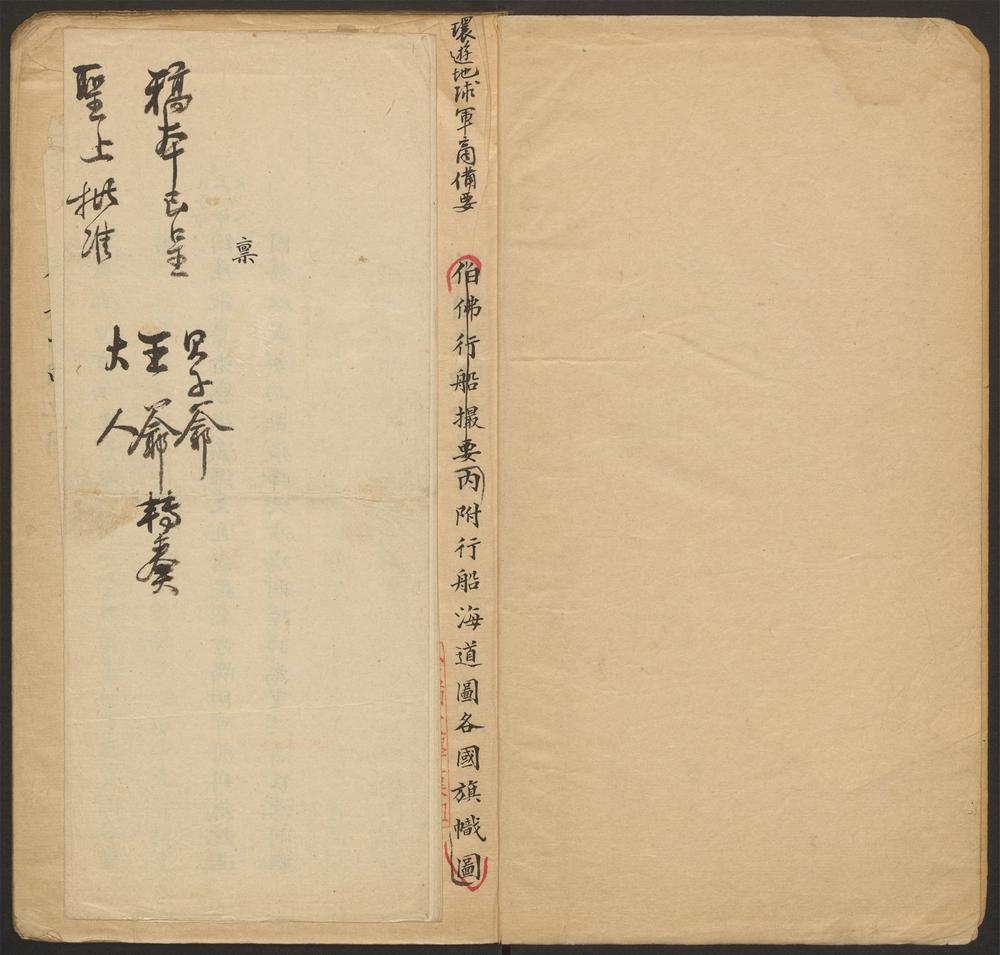 環遊地球軍商備要
伯佛行船撮要丙附行船海道圖各國旗幟圖
稟
貝子爺
稿本已呈
王爺轉奏
大人
聖上批准